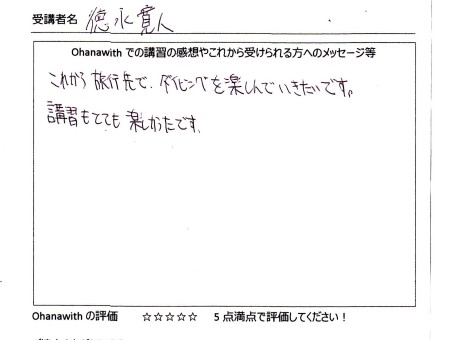 受講者名 徳永寛人
Ohanawith での講習の感想やこれから受けられる方へのメッセージ等
これから旅行先で、ダイビングを楽しんでいきたいです。
講習もとても楽しかったです。
Ohanawith の評価 ☆☆☆☆☆ 5 点満点で評価してください！